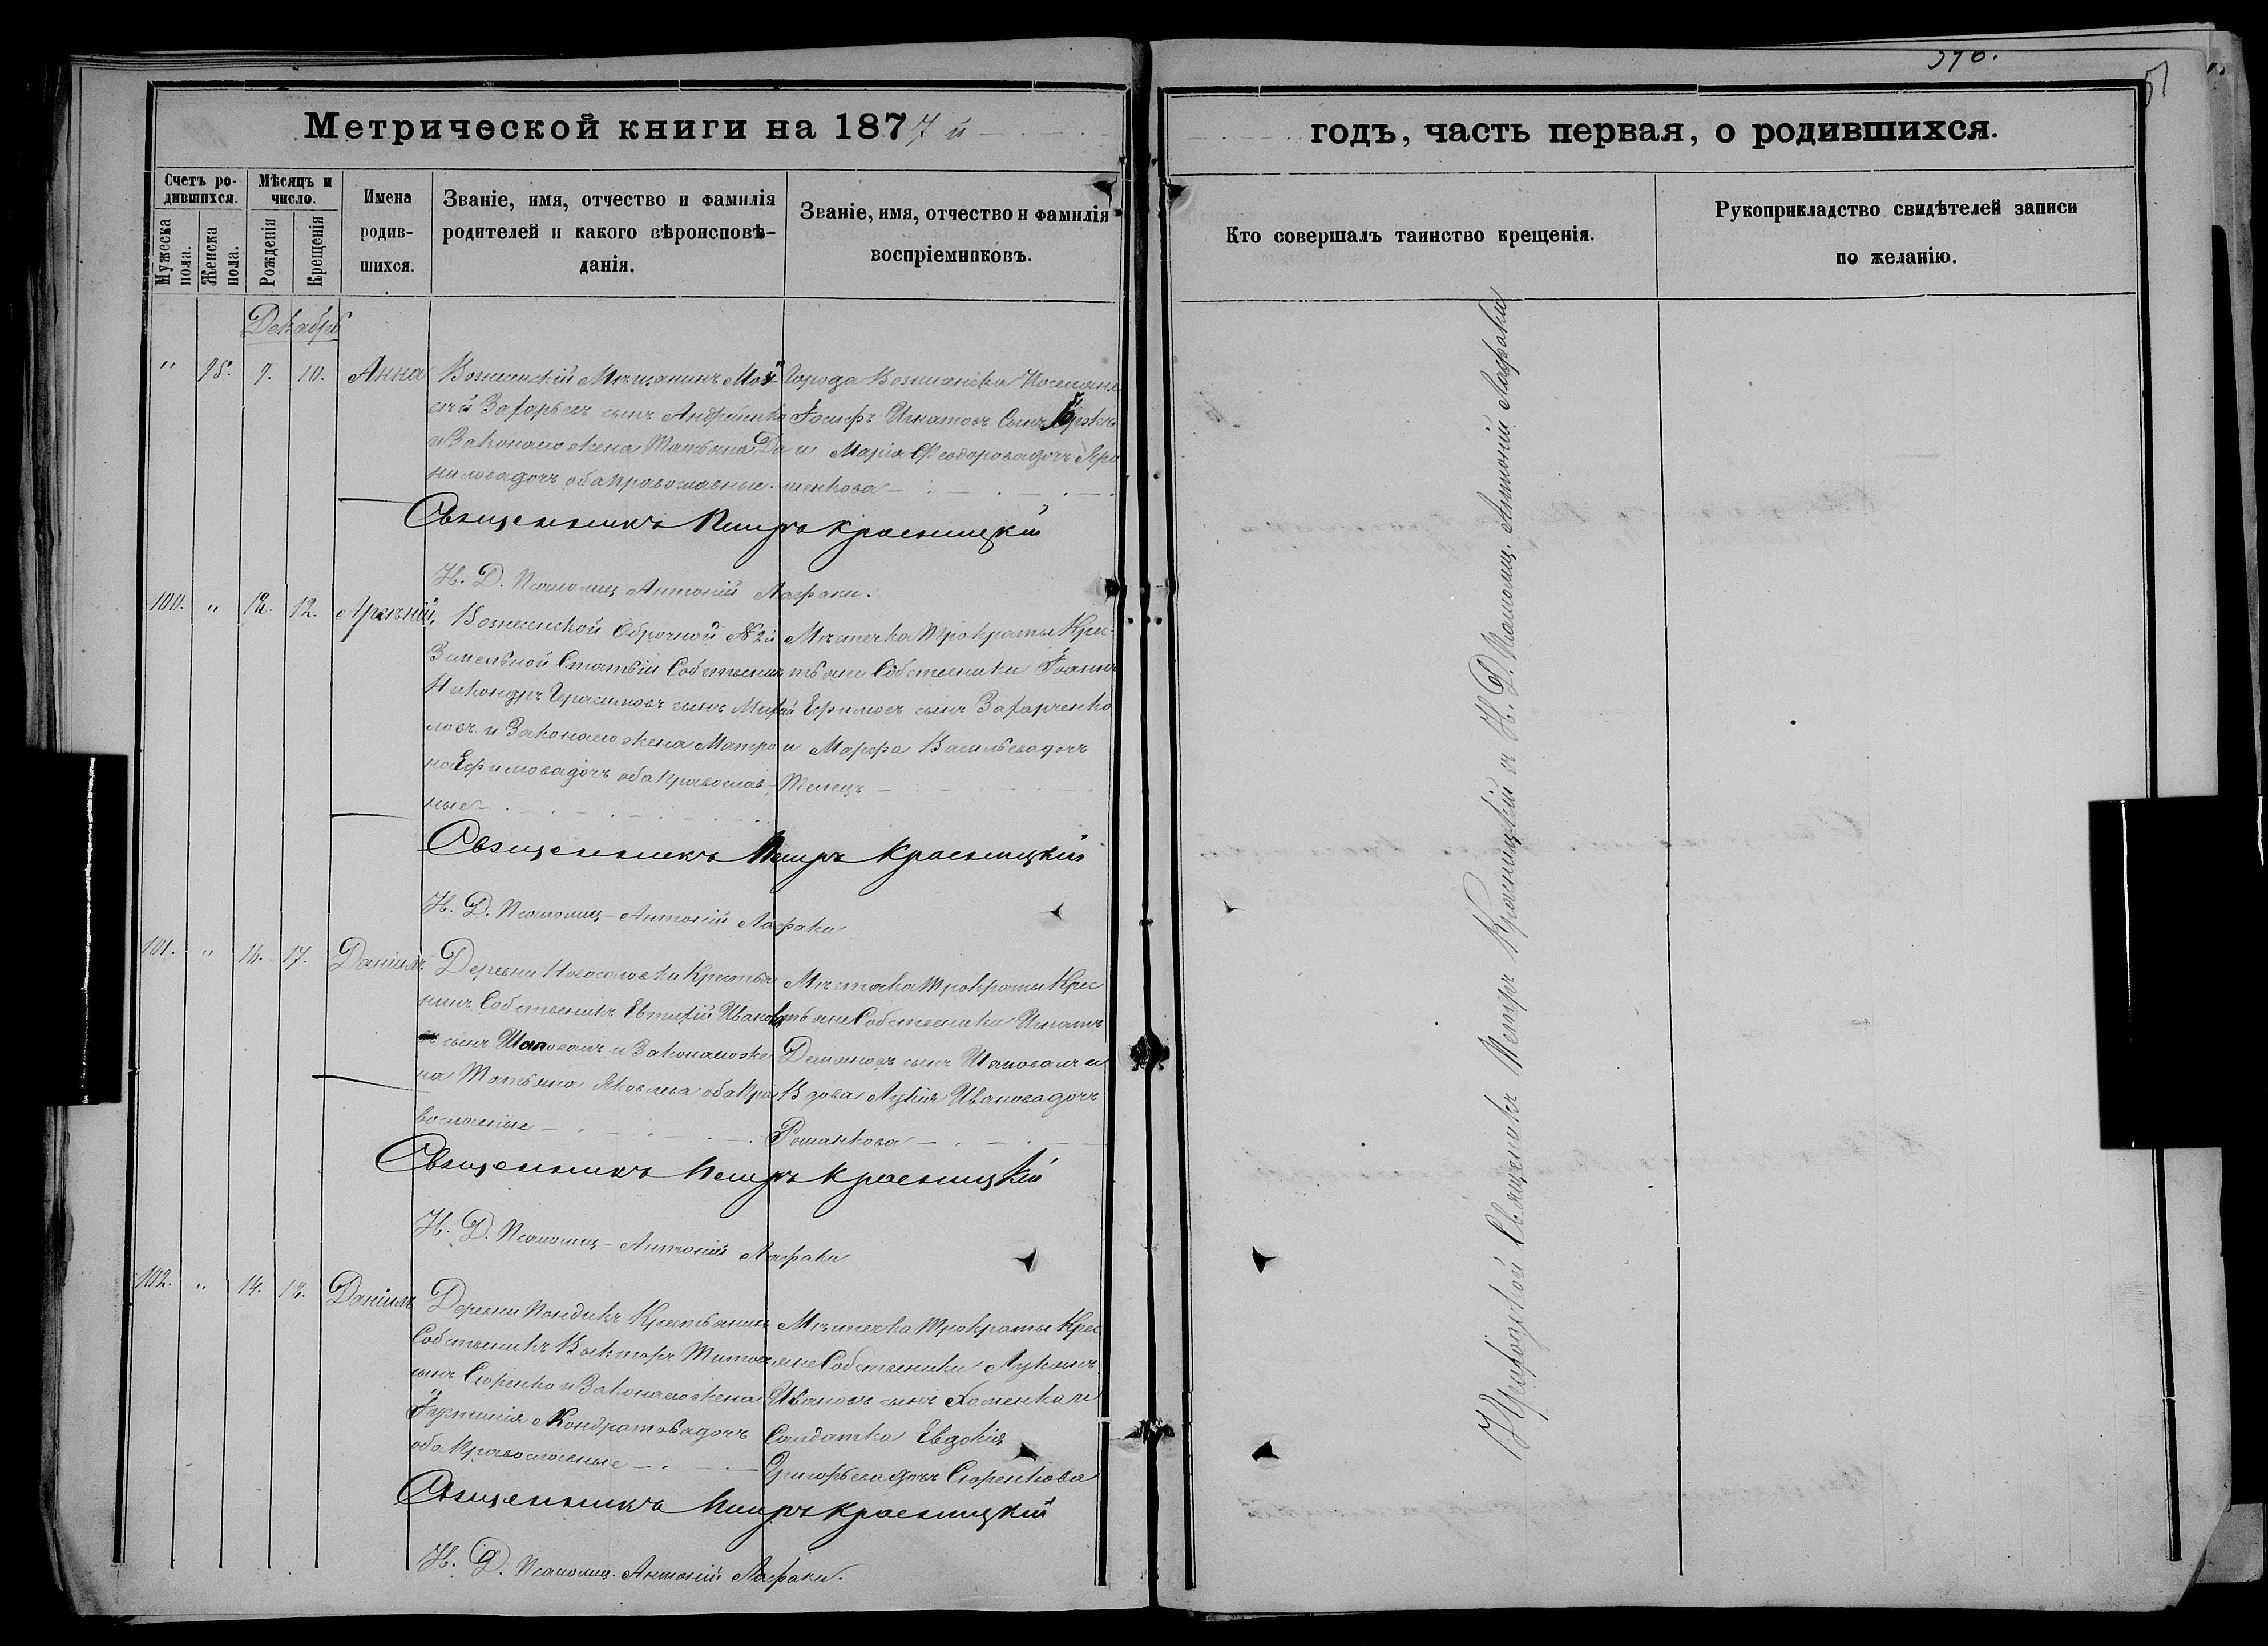 Метрической книги на 1877 й
годъ, часть первая, о родившихся.
Счетъ ро-
дившихся.
Мужеска
пола.
Женска
пола.
Мѣсяцъ и
число.
Рожденія
Крещенія
Имена
родив-
шихся.
Званіе, имя, отчество и фамилія
родителей и какого вѣроисповѣ-
данія.
Званіе, имя, отчество и фамилія
воспріемниковъ.
Кто совершалъ таинство крещенія.
Рукоприкладство свидѣтелей записи
по желанію.
Декабрь
" 95. 9. 10. Анна
Вознесенскій Мѣщанинъ Мои
сей Захарьевъ сынъ Андріенко
и Законная жена Татьяна Да
ниловадочъ оба православные.
Города Вознесенска Поселяне
Іосифъ Игнатовъ Сынъ
и Марія Феодоровадочъ Яро
шенкова
Священникъ Петръ Красницкій
Н. Д. Псаломщ Антоній Лафаки.
100. " 12. 12. Арсеній,
Вознесенской Оброчной № 2й
Земельной Статьи Собственник
Никандръ Герасимовъ сынъ Михай
ловъ и Законная жена Матро
на Ефимовадочъ оба православ-
ные
Мѣстечка Трократы Крес-
тьяне Собственники Іоаннъ
Ефимовъ сынъ Захарченко
и Марфа Васильевадочъ
Телецъ
Священникъ Петръ Красницкій
Н. Д. Псаломщ Антоній Лафаки
101. " 16. 17. Даніилъ
Деревни Новоселовки Крестья
нинъ Собственникъ Евтихій Иванов
сынъ Шаповалъ и Законная же
на Татьяна Яковлева оба пра
вославные
Мѣстечка Трократы Крес
тьяне Собственники Игнатъ
Демяновъ сынъ Шаповалъ и
Вдова Лукія Ивановадочъ
Романкова
Священникъ Петръ Красницкій
Н. Д. Псаломщ Антоній Лафаки
102. " 14. 18. Даніилъ
Деревни Пондикъ Крестьянинъ
Собственникъ Викторъ Титовъ
сынъ Скоренко и Законная жена
Іустинія Кондратовадочъ
оба Православные
Мѣстечка Трократы Крес
яне Собственники Лукьянъ
Ивановъ сынъ Хоменко и
Солдатка Евдокія
Григорьевадочъ Скоренкова
Священникъ Петръ Красницкій
Н. Д. Псаломщ. Антоній Лафаки.
Приходской Священникъ Петръ Красницкій и Н. Д. Псаломщ. Антоній Лафаки